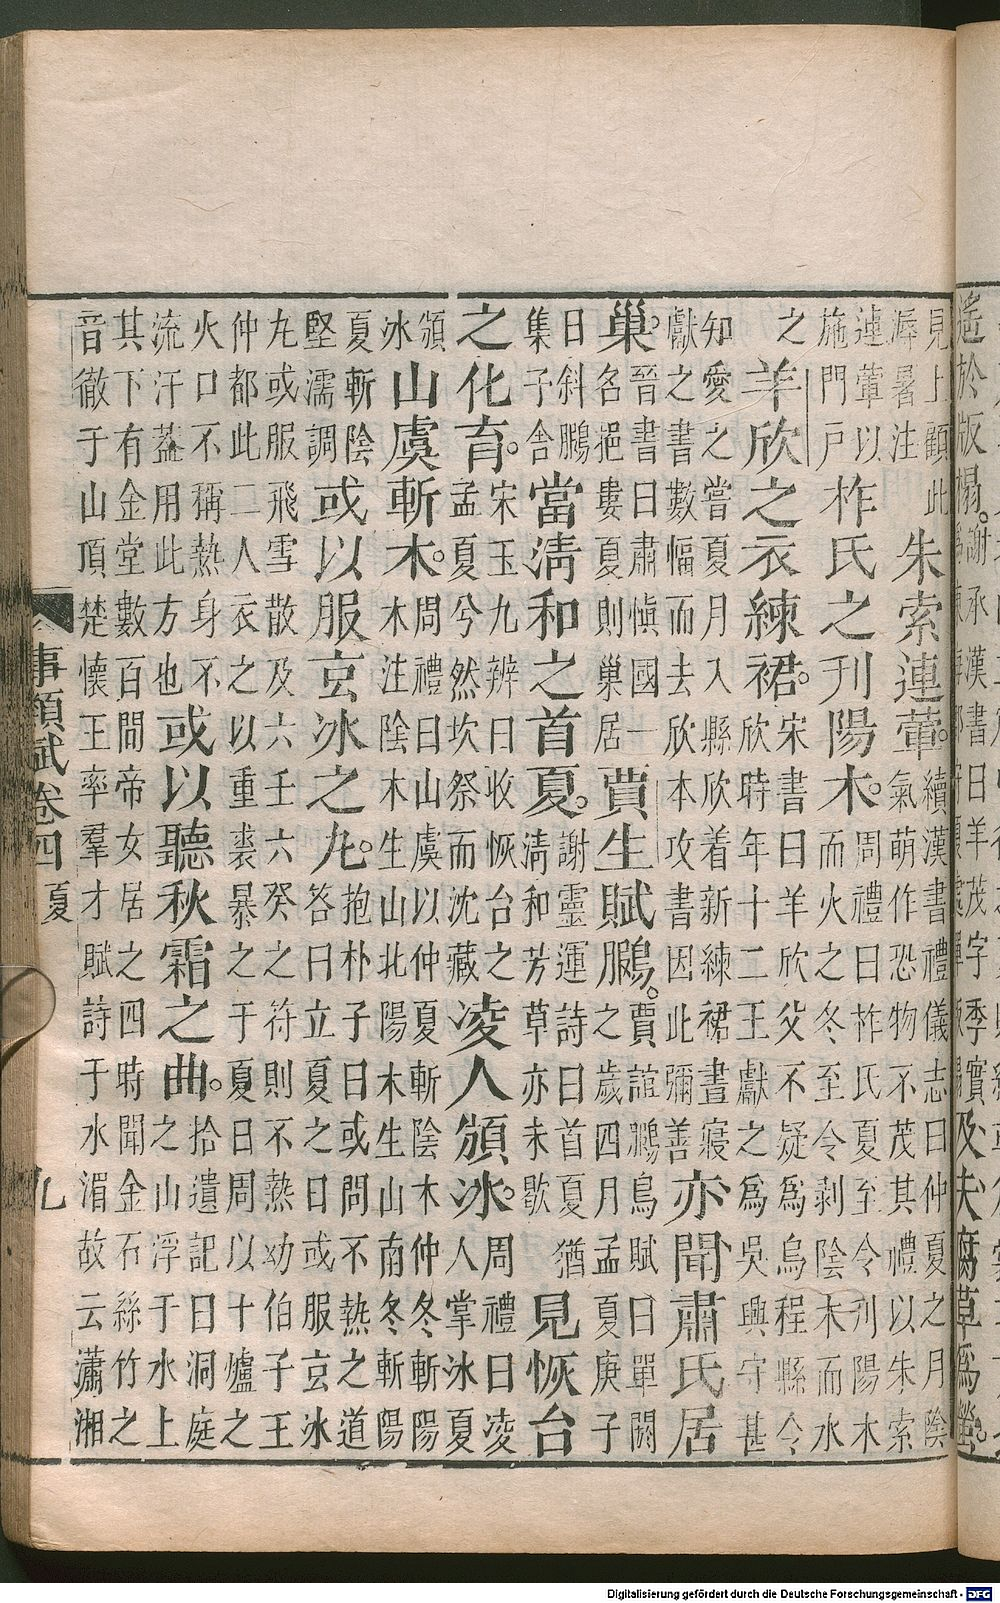 遙於版榻。謝承漢書曰羊茂字季寶
及夫腐草爲螢。
見上顧此
溽暑注
朱索連葷。
續漢書禮儀志曰仲夏之月陰
氣萌作恐物不茂其禮以朱索
連葷以
施門戶
柞氏之刋陽木。
周禮曰柞氏夏至令刋陽木
而火之冬至令剥陰木而水
之
羊欣之衣練裙。
宋書曰羊欣父不疑爲烏程縣令
欣時年十二王獻之爲吳興守甚
知愛之嘗夏月入縣欣着新練裙晝寝
獻之書數幅而去欣本攻書因此彌善
亦聞肅氏居
巢。
晉書曰肅慎國一
名挹婁夏則巢居
賈生賦鵬。
賈誼鵬鳥賦曰單閼
之歲四月孟夏庚子
日斜鵬
集子舍
當清和之首夏。
謝靈運詩曰首夏猶
清和芳草亦未歇
見恢台
之化育。
宋玉九辨曰收恢台之
孟夏兮然坎祭而沈藏
凌人頒冰。
周禮曰凌
人掌冰夏
頒
冰
山虞斬木。
周禮曰山虞以仲夏斬陰木仲冬斬陽
木注陰木生山北陽木生山南冬斬陽
夏斬陰
堅濡調
或以服玄冰之丸。
抱朴子曰或問不熱之道
答曰立夏之日或服玄冰
丸或服飛雪散及六壬六癸之符則不熱幼伯子王
仲都此二人衣之以重裘暴之于夏日周以十爐之
火口不稱熱身不
流汗蓋用此方也
或以聽秋霜之曲。
拾遺記曰洞庭
之山浮于水上
其下有金堂數百間帝女居之四時聞金石絲竹之
音徹于山頂楚懷王率羣才賦詩于水湄故云瀟湘
事類賦卷四 夏 九
Digitalisierung gefördert durch die Deutsche Forschungsgemeinschaft - DFG